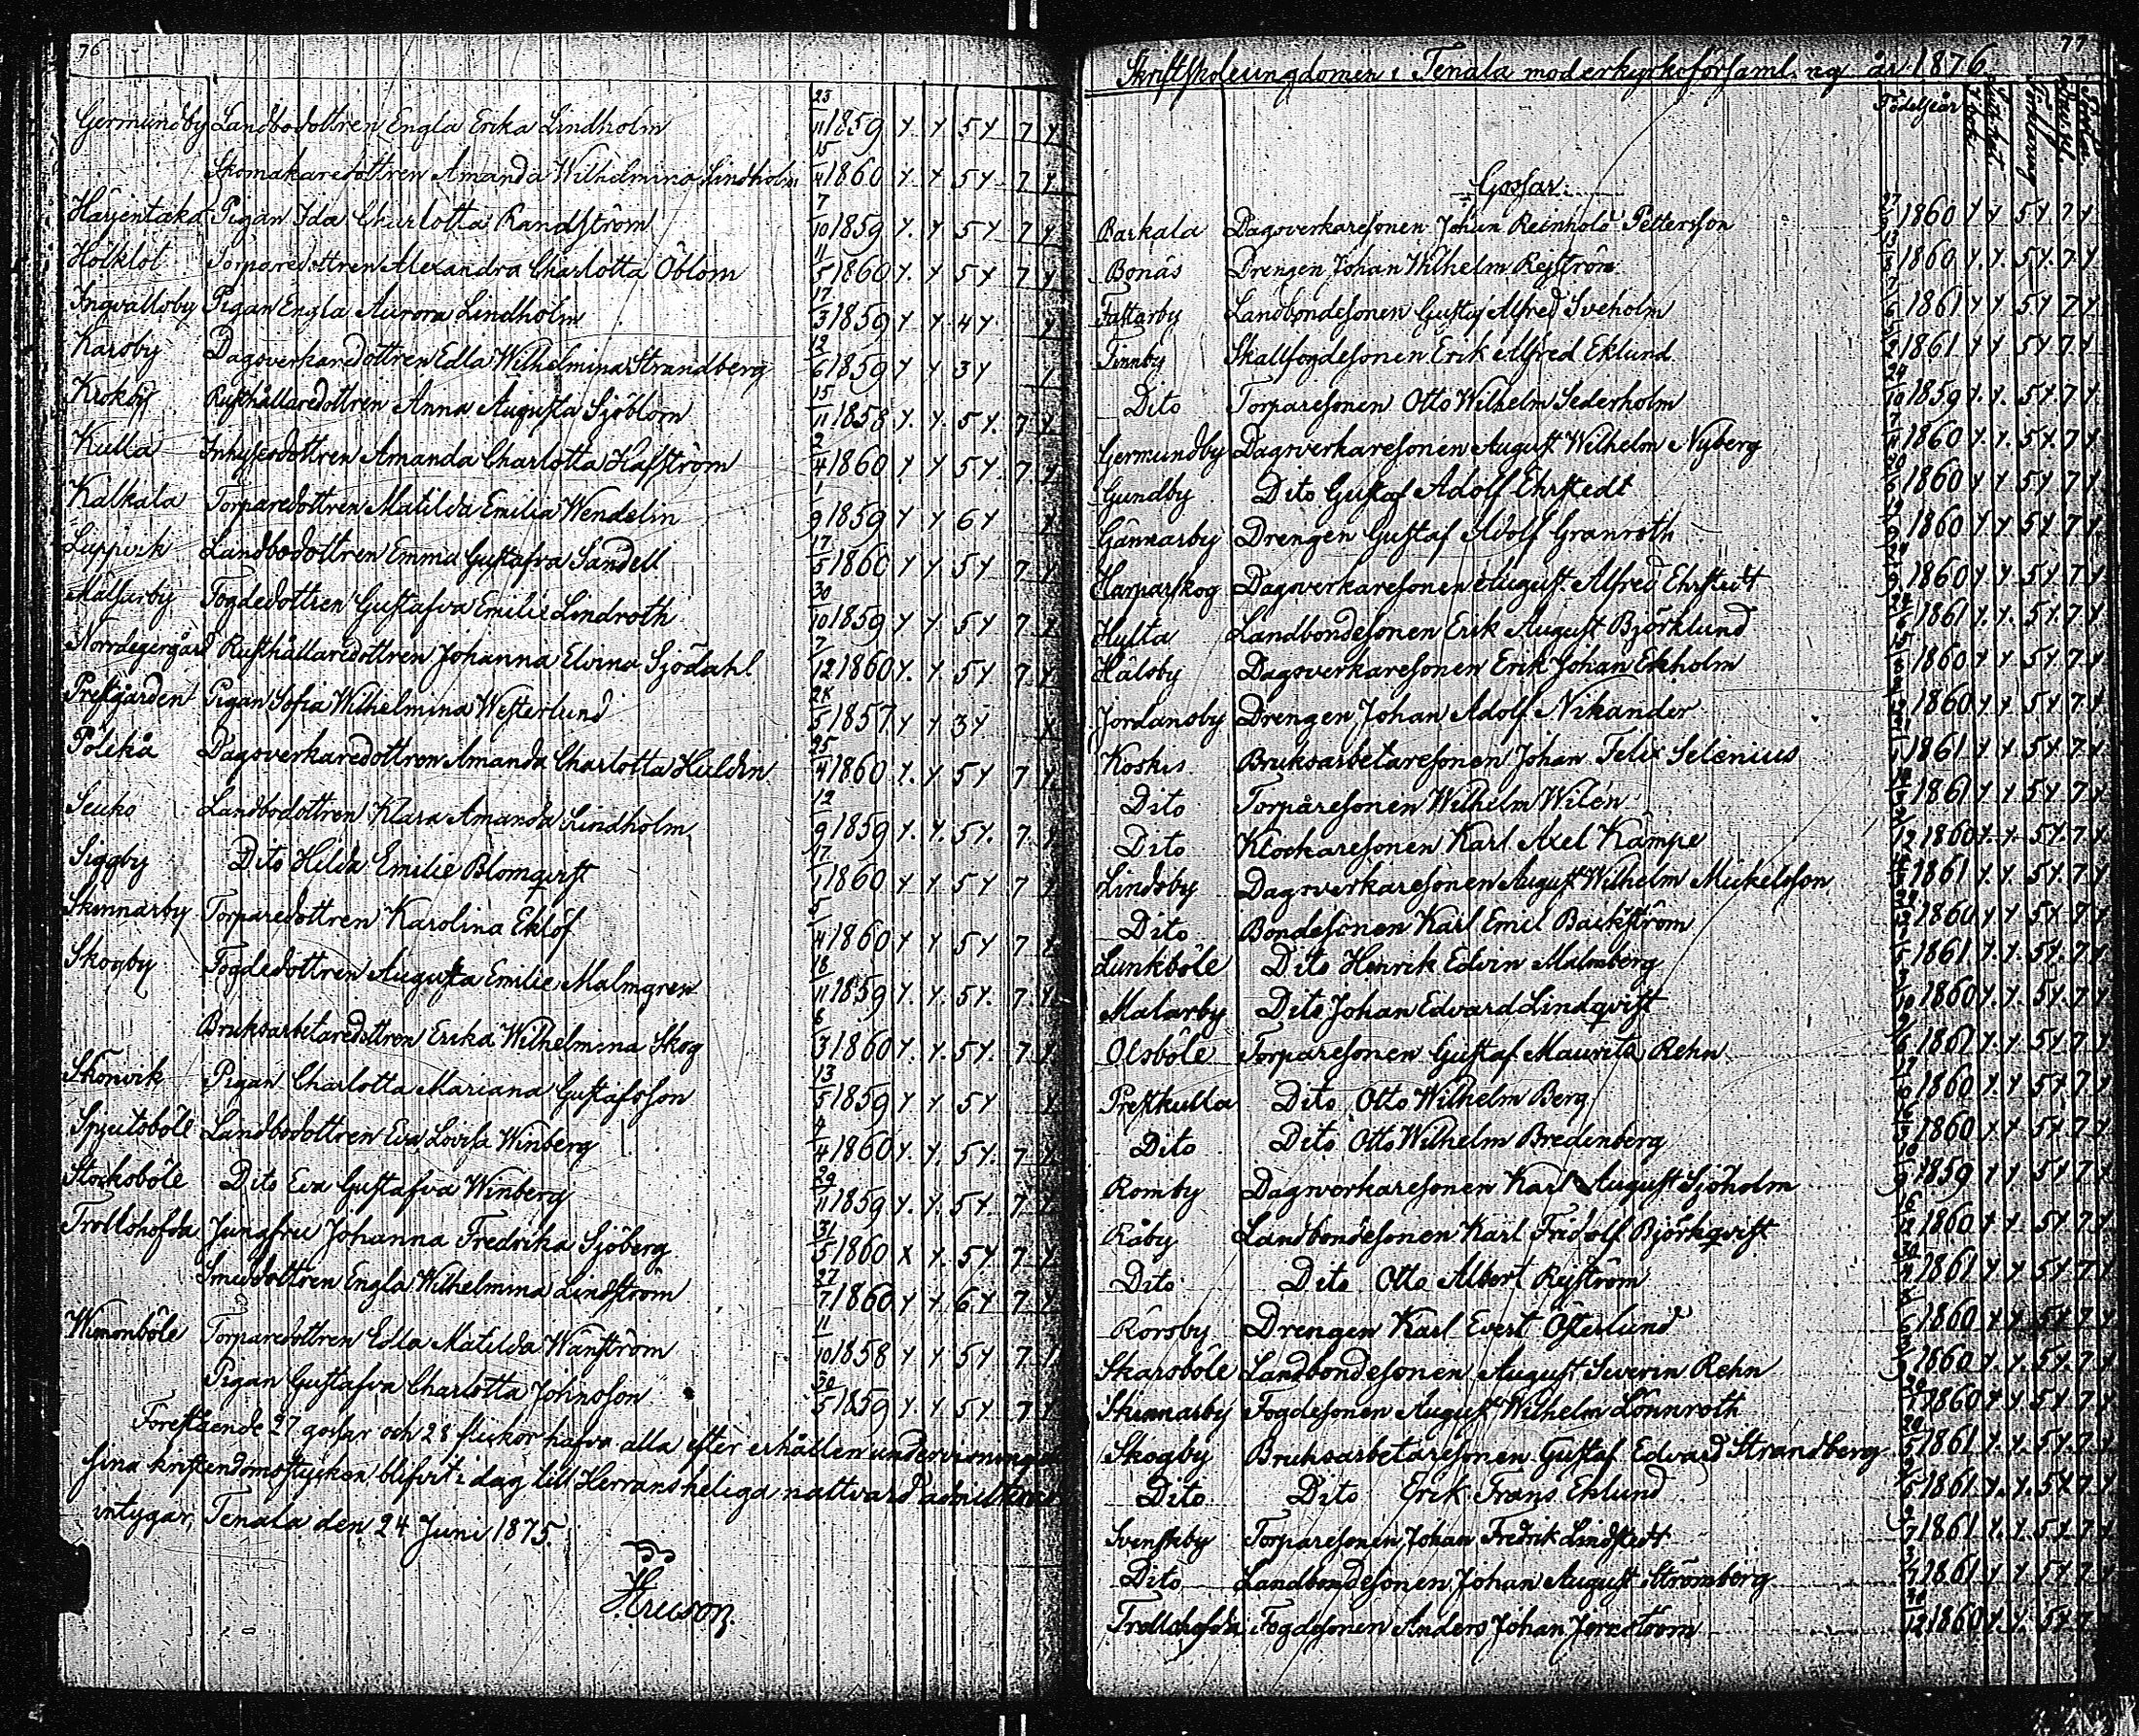 76
Germundby Landbodottren Engla Erika Lindholm 23/11 1859 y. y 5 y 7 y.
Skomakaredottren Amanda Wilhelmina Lindholm 15/4 1860 y. y 5 y. 7 y.
Pigan Ida Charlotta Randström 7/10 1859 y. y 5 y 7 y.
Torparedottren Alexandra Charlotta Öblom 11/5 1860 y. y 5 y 7 y.
Ingvallsby Pigan Engla Aurora Lindholm 17/3 1859 y y. 4 y. y
Karsby Dagsverkaredottren Edla Wilhelmina Strandberg 12/6 1859 y y 3 y
Krokby Rusthållaredottren Anna Augusta Sjöblom 15/11 1858 y. y. 5 y. 7 y.
Kulla Inhysesdottren Amanda Charlotta Hafström 2/4 1860 y y 5 y. 7. y.
Kalkala Torparedottren Matilda Emilia Wendelin 1/9 1859 y y 6 y y.
Landbodottren Emma Gustafva Sandell 17/5 1860 y y 5 y 7 y.
Fogdedottren Gustafva Emilie Lindroth 30/10 1859 y y. 5 y 7. y.
Norrdegergård Rusthållaredottren Johanna Elvina Sjödahl 7/12 1860 y. y. 5 y 7. y.
Prestgården Pigan Sofia Wilhelmina Westerlund 28/5 1857 y y 3 y y
Dagsverkaredottren Amanda Charlotta Huldin 25/4 1860 y. y 5 y 7 y.
Landbodottren Klara Amanda Lindholm 12/9 1859 y. y. 5 y. 7. y.
Siggby Dito Hilda Emilie Blomqvist 17/1 1860 y y 5 y 7 y
Skinnarby Torparedottren Karolina Eklöf 5/4 1860 y y 5 y 7 y.
Skogby Fogdedottren Augusta Emilie Malmgren 18/11 1859 y. y. 5 y. 7. y.
Bruksarbetaredottren Erika Wilhelmina Skog 6/3 1860 y. y. 5 y. 7 y.
Skonvik Pigan Charlotta Mariana Gustafsson 13/5 1859 y y. 5 y y
Spjutsböle Landbodottren Eva Lovisa Winberg 4/4 1860 y. y. 5 y. 7 y.
Storksböle Dito Eva Gustafva Winberg 29/11 1859 y. y. 5 y. 7 y.
Trollshofda Jungfru Johanna Fredrika Sjöberg 31/5 1860 x y. 5 y 7 y.
Smeddottren Engla Wilhelmina Lindström 27/7 1860 y y. 6 y 7 y.
Wimonböle Torparedottren Edla Matilda Wänström 11/10 1858 y y 5 y 7
Pigan Gustafva Charlotta Johnsson 30/5 1859 y. y 5 y 7 y.
Forestående 27 gossar och 28 flickor hafva alla efter erhållen undervisning
sina kristendomsstycken blifvit i dag till Herrans heliga nattvard
intygar, Tenala den 24 Juni 1875.
77
Skriftskoleungdomen i Tenala moderkyrkoförsamling år 1876.
Födelseår
Gossar.
Barkala Dagsverkaresonen Johan Reinhold Pettersson 1860 y y. 5 y 7 y
Bonäs Drengen Johan Wilhelm Rejström 1860 y. y. 5 y. 7 y.
Fastarby Landbondesonen Gustaf Alfred Sveholm 1861 y y 5 y 7 y.
Finnby Skallfogdesonen Erik Alfred Eklund 1861 y y 5 y 7 y.
Dito Torparesonen Otto Wilhelm Sederholm 24/10 1859 y. y. 5 y 7 y.
Germundby Dagsverkaresonen August Wilhelm Nyberg 1860 y. y. 5 y. 7 y.
Gundby Dito Gustaf Adolf Ehrstedt 1860 y y 5 y 7 y.
Gännarby Drengen Gustaf Adolf Granroth 1860 y y 5 y 7 y.
Harparskog Dagsverkaresonen August Alfred Ehrstedt 1860 y y. 5 y 7 y.
Hylta Landbondesonen Erik August Björklund 1861 y. y. 5 y. 7 y.
Hålsby Dagsverkaresonen Erik Johan Ekholm 1860 y y 5 y 7 y.
Jordansby Drengen Johan Adolf Nikander 1860 y y. 5 y 7 y.
Koskis Bruksarbetaresonen Johan Felix Selenius 1861 y y 5 y. 7 y.
Dito Torparesonen Wilhelm Wilén 1861 y y. 5 y. 7 y.
Dito Klockaresonen Karl Axel Kämpe 1860 y. y. 5 y. 7 y.
Lindsby Dagsverkaresonen August Wilhelm Mickelsson 1861 y. y. 5 y. 7 y.
Dito Bondesonen Karl Emil Backström 1860 y y. 5 y. 7 y.
Lunkböle Dito Henrik Edvin Malmberg 1861 y. y. 5 y. 7 y.
Malarby Dito Johan Edvard Lindqvist 1860 y. y. 5 y. 7 y.
Olsböle Torparesonen Gustaf Mauritz Rehn 1861 y. y. 5 y. 7 y.
Prestkulla Dito Otto Wilhelm Berg 1860 y. y. 5 y. 7 y
Dito Dito Otto Wilhelm Bredenberg 1860 y y 5 y 7 y
Romby Dagsverkaresonen Karl August Sjöholm 1859 y y 5 y 7 y
Råby Landbondesonen Karl Fridolf Björkqvist 1860 y y. 5 y 7 y.
Dito Dito Otto Albert Rejström 1861 y y 5 y 7 y
Rörsby Drengen Karl Evert Österlund 1860 y y 5 y 7 y
Skarsböle Landbondesonen August Severin Rehn 1860 y. y. 5 y. 7 y.
Skinnarby Fogdesonen August Wilhelm Lönnroth 1860 y y 5 y 7 y.
Skogby Bruksarbetaresonen Gustaf Edvard Strandberg 1861 y. y. 5 y. 7. y.
Dito Dito Erik Frans Eklund 1861 y. y. 5 y 7 y
Svenskby Torparesonen Johan Fredrik Lindstedt 1861 y. y. 5 y. 7 y.
Dito Landbondesonen Johan August Strömberg 1861 y y 5 y. 7 y
Trollshofda Fogdesonen Anders Johan 1860 y. y. 5 y. 7